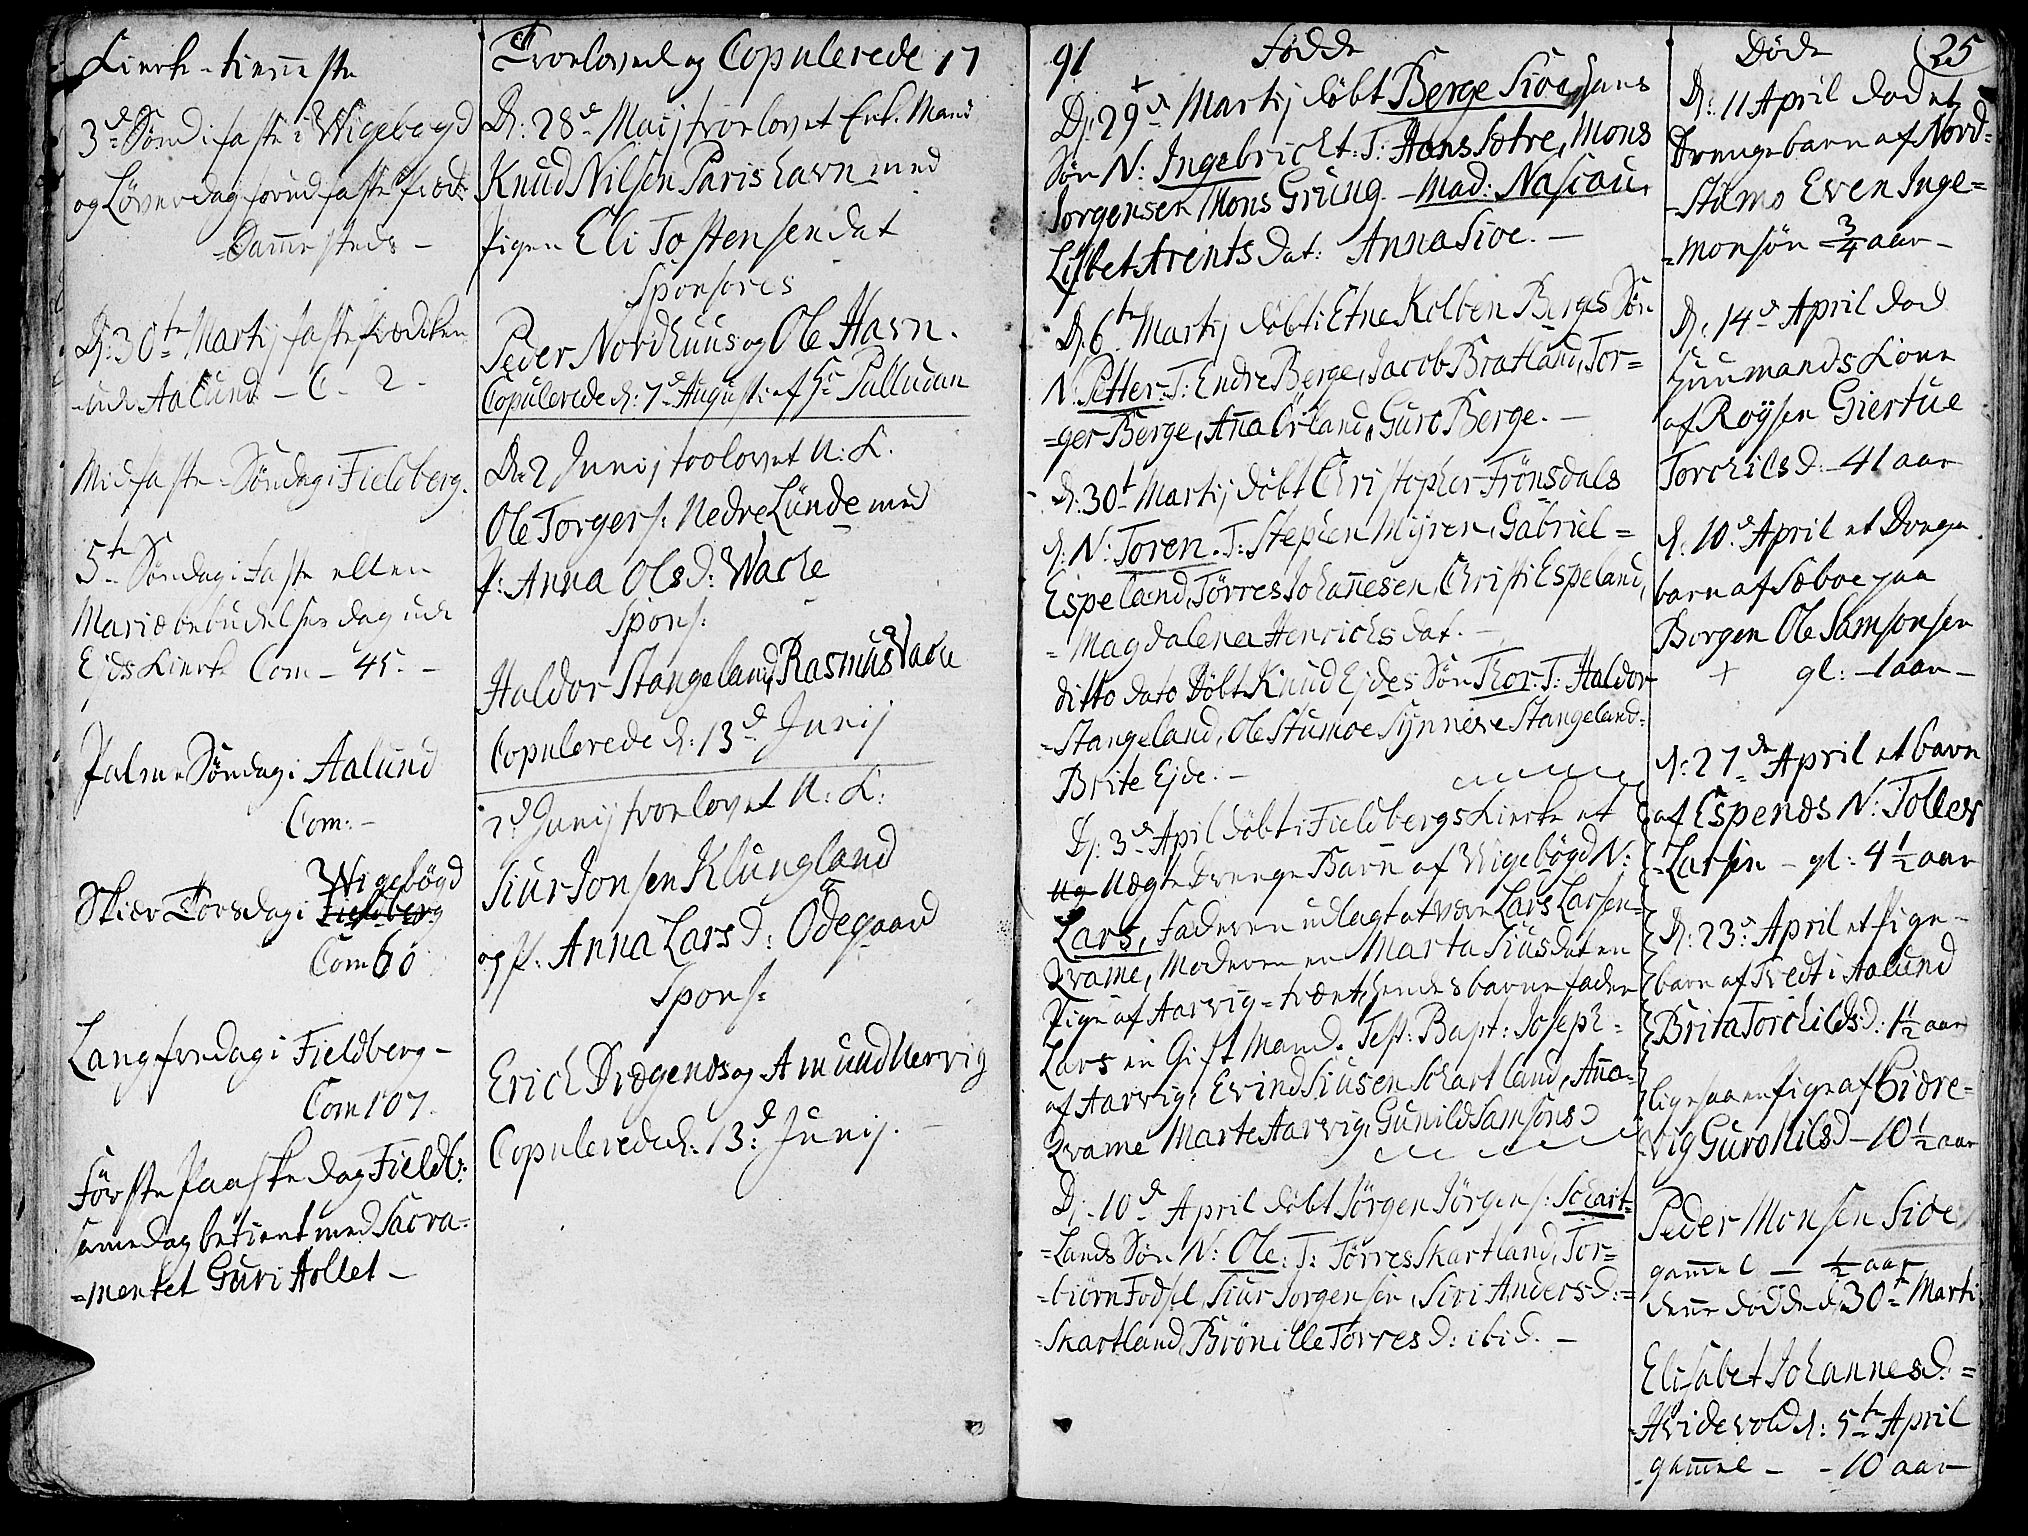 Kirke-tienneste
3d Sönd i faste i Wigebögd
og Löverdag forud faste præd:
samesteds -
D: 30te Martij faste prædiken
udi Aalund - C - 2 -
Midfaste-Söndag i Fieldberg.
5te Söndag i Faste eller
Mariæ bebudelses dag udi
Eids Kirke Com - 45. -
Palme Söndag i Aalund
Com: -
Wigebögd
Skier Torsdag i Fieldberg
Com 60
Langfredag i Fieldberg -
Com 107.
Förste Paaske dag Fieldb:
samedag betient med Sacra=
=mentet Guri Hollet -
Troelovede og Copulerede 17
D: 28de Maij troelovet Enk. Mand
Knud Nilsen Parishavn med
pigen Eli Tostensendat
Sponsores
Peder Nordhuus og Ole Havn.
Copulerede d: 7de Augusti af Hr Palludan
D: 2 Junij trolovet U: K.
Ole Torgers: Nedre Lünde med
p: Anna Olsd: Wache
Spons:
Haldor Stangeland, Rasmus Wache
Copulerede d: 13de Junij
2d Junij troelovet U: K:
Siur Jonsen Klungland
og p: Anna Larsd: Ödegaard
Spons:
Erich Drægenes og Amund Nervig
Copulerede d: 13de Junij. -
91 Födde
D: 29de Martij döbt Berge Sioe, hans
Sön N: Ingebricht: T: Hans Sætre, Mons
Jorgensen, Mons Grüng. - Mad: Nascou,
Lisbet Arentsdat: Anna Sioe. -
D: 6te Martij döbt i Etne Kolben Berges Sön
N: Petter: T: Endre Berge, Jacob Bratland, Tor=
=ger Berge, Anna Örland, Guro Berge. -
d: 30t Martij döbt Christopher Frönsdals
d: N: Toren. T: Stephen Myren, Gabriel =
Espeland, Törres Johannesen, Christi Espeland,
= Magdalena Henrichsdat. -
ditto dato Döbt Knud Ejdes Sön Thor: T: Haldor
=Stangeland, Ole Stumoe Synneve Stangeland=
Brite Ejde. -
D: 3de April döbt i Fieldbergs Kirke et
Uægte Drenge Barn af Wigebögd N:
Lars, Faderen udlagt at være Lars Larsen=
Qvame, Moderen er Marta Siusdat en
Pige af Aarvig = tient hendes barne fader
Lars en Gift Mand. Test: Bapt: Joseph=
af Aarvig, Evind Siusen Schartland, Anna=
Qvame Marte Aarvig, Gunild Samsons D
D: 10de April döbt Jörgen Jörgens: Schart=
=Lands Sön N: Ole: T: Törres Skartland, Tor=
=biörn Fodsel, Siur Jorgensen, Siri Andersd:=
=Skartland, Brönille Torresd: ibid. -
Döde 25
D: 11 April död et
Drengebarn af Nord=
=Stumo Even Inge=
=monsön 3/4 aar -
D: 14de April död
Huusmands Kone
af Röysen Giertue
Torchilsd: - 41 aar
d: 10de April et Drenge
barn af Sæboe paa
Borgen Ole Samsonsen
+ gl: - 1 aar -
d: 27de April et barn
af Espends N: Tollev
Larsen - gl: 4 1/2 aar
D: 23de April et pige-
barn af Tvedt i Aalund
Brita Torchildsd: 1 1/2 aar
ligesaa en pige af Eidre=
=vig Guro Nilsd - 10 1/2 aar
Peder Monsen Sioe
gammel - 1/2 aar
denne döde d: 30te Martij
Elisabet Johannesd: =
Hvidevold d: 5te April
gammel - - 10 aar